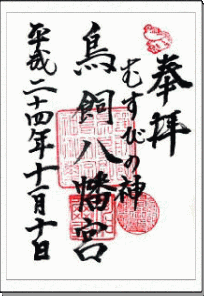 奉拝
むすびの神
鳥飼八幡宮
平成二十四年十一月十日